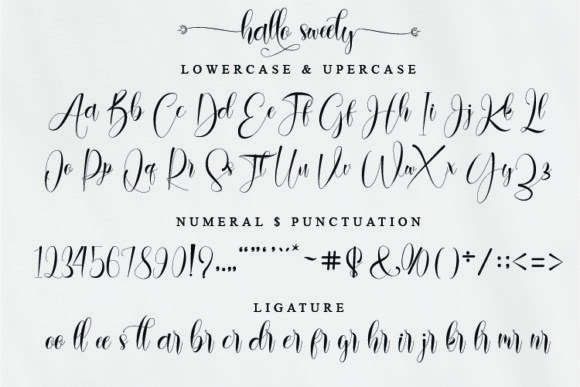 hallo sweety
LOWERCASE & UPERCASE
Aa Bb Cc Dd Ee Ff Gg Hh Ii Jj Kk Ll
Oo Pp Qq Rr Ss Tt Uu Vv Ww Xx Yy Zz
NUMERAL $ PUNCTUATION
1234567890!?.,..“”‘’* ~ # $ & % ( ) ÷ / : ; < = >
LIGATURE
oo ll ee s tt ar br cr dr er fr gr hr ir jr kr lr mr nr